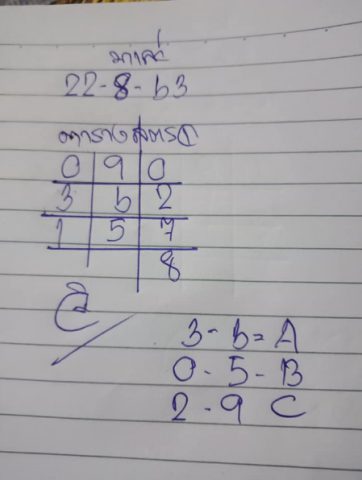 มาเล่
22-8-63
ตารางสูตร
0 9 0
3 6 2
1 5 7
8
3-6=A
0-5-B
2-9 C